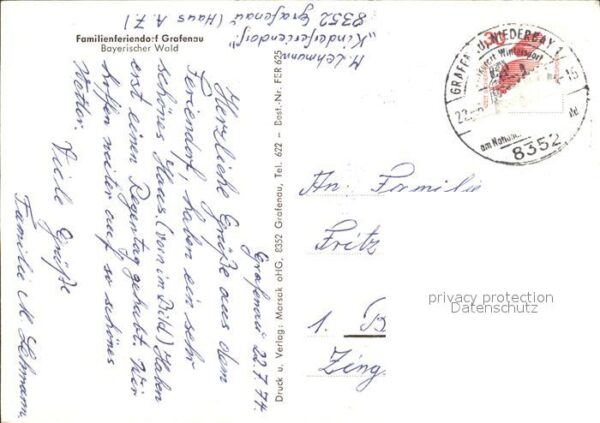 Familienferiendorf Grafenau
Bayerischer Wald
M. Lehmann
"Kinderferiendorf"
8352 Grafenau (Haus A 7)
Grafenau 22.7.74
Herzliche Grüße aus dem
Feriendorf, haben ein sehr
schönes Haus. (vorn im Bild) Haben
erst einen Regentag gehabt. Wir
hoffen weiter auf so schönes
Wetter. Viele Grüße
Familie M. Lehmann
Druck u. Verlag: Morsak oHG, 8352 Grafenau, Tel. 622 – Best.-Nr. FER 625
GRAFENAU, NIEDERBAY 1
22.
-16
am Nation
8352
30
An Familie
Fritz
1. B
Zing
privacy protection
Datenschutz